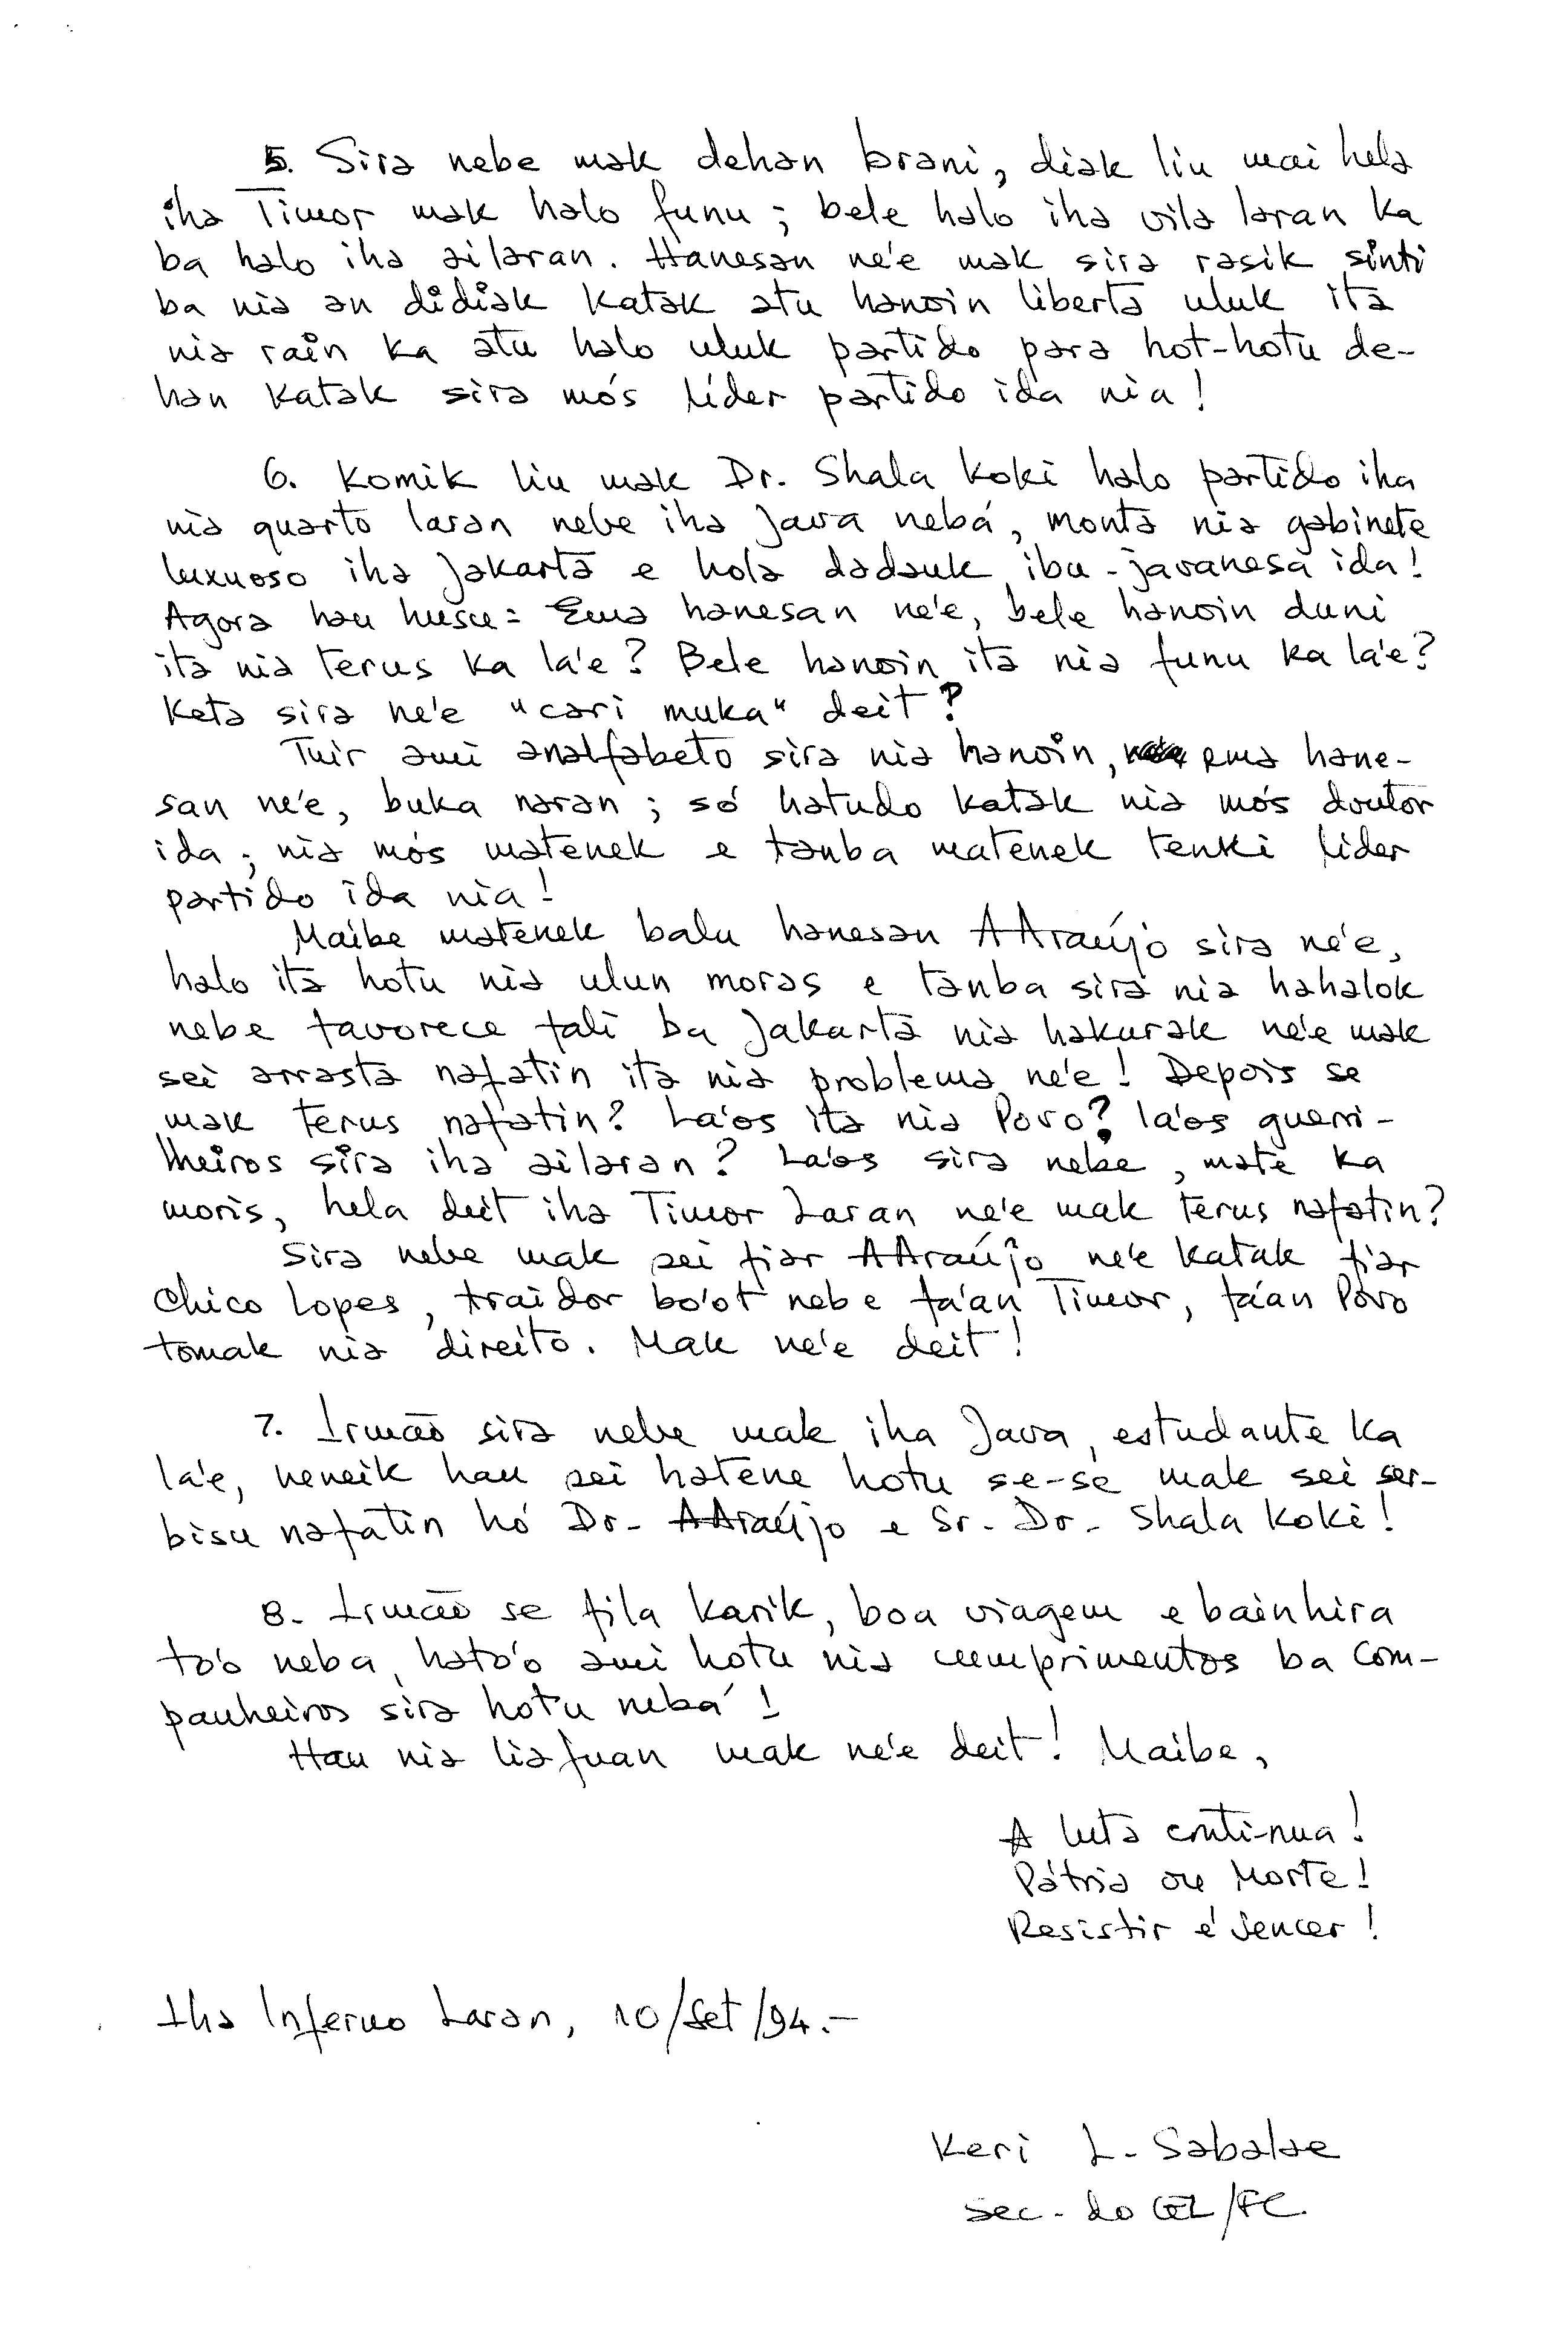 5. Sira nebe mak dehan brani, diak liu mai hela
iha Timor mak halo funu; bele halo iha vila laran ka
ba halo iha ailaran. Hanesan ne'e mak sira rasik sinti
ba nia an didiak katak atu hanoin liberta uluk ita
nia rain ka atu halo uluk partido para hot-hotu de-
han katak sira mós líder partido ida nia!
6. Komik liu mak Dr. Shala Koki halo partido iha
nia quarto laran nebe iha Java nebá, monta nia gabinete
luxuoso iha Jakarta e hola dadauk ibu-javanesa ida!
Agora hau husu: Ema hanesan ne'e, bele hanoin duni
ita nia terus ka la'e? Bele hanoin ita nia funu ka la'e?
Keta sira ne'e "cari muka" deit?
Tuir ami analfabeto sira nia hanoin, ema hane-
san ne'e, buka naran; só hatudo katak nia mós doutor
ida; nia mós matenek e tanba matenek tenki líder
partido ida nia!
Maibe matenek balu hanesan AAraújo sira ne'e,
halo ita hotu nia ulun moras e tanba sira nia hahalok
nebe favorece fali ba Jakarta nia hakarak ne'e mak
sei arrasta nafatin ita nia problema ne'e! Depois se
mak terus nafatin? La'os ita nia Povo? la'os guerri-
lheiros sira iha ailaran? La'os sira nebe, mate ka
moris, hela deit iha Timor Laran ne'e mak terus nafatin?
Sira nebe mak sei fiar AAraújo ne'e katak fiar
Chico Lopes, traidor bo'ot nebe fa'an Timor, fa'an Povo
tomak nia direito. Mak ne'e deit!
7. Irmão sira nebe mak iha Java, estudante ka
la'e, neneik hau sei hatene hotu se-se mak sei ser-
bisu nafatin hó Dr. AAraújo e Sr. Dr. Shala Koki!
8. Irmão se fila karik, boa viagem e bainhira
to'o neba, hato'o ami hotu nia cumprimentos ba com-
panheiros sira hotu nebá!
Hau nia liafuan mak ne'e deit! Maibe,
A luta conti-nua!
Pátria ou Morte!
Resistir é vencer!
Iha Inferno Laran, 10/Set/94.-
Keri L. Sabalae
Sec. do CEL/FC.